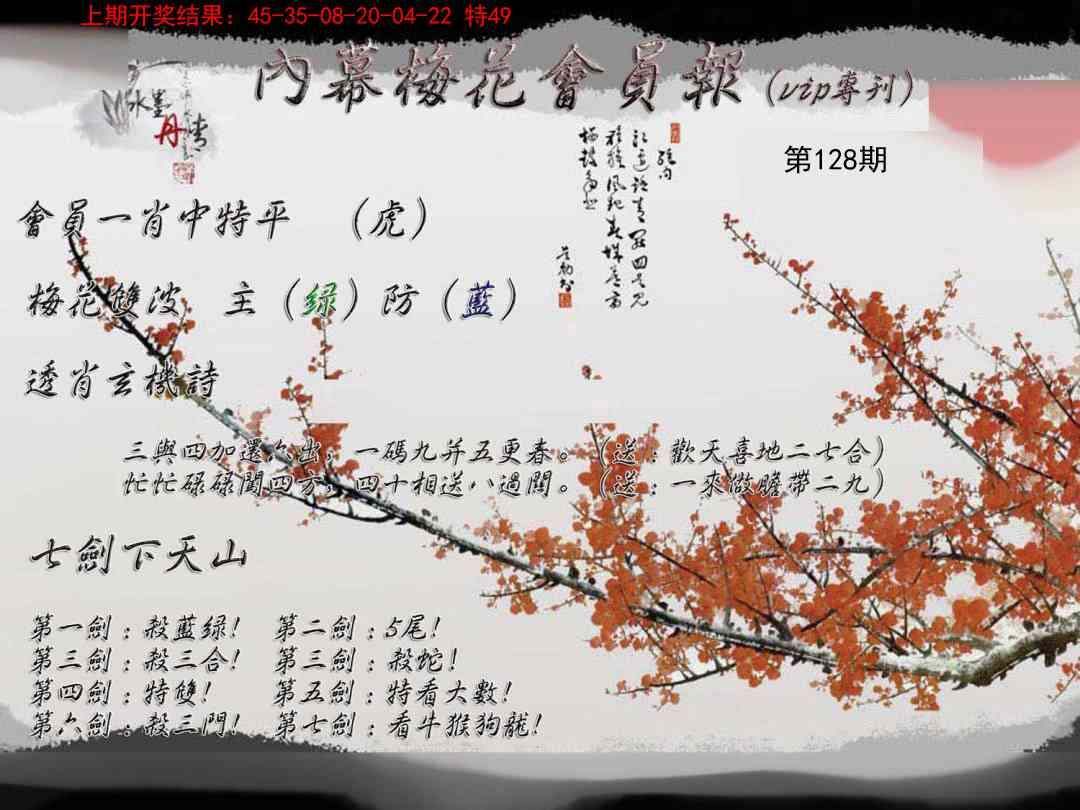 上期开奖结果：45-35-08-20-04-22 特49
內幕梅花會員報（vip專刊）
水墨丹情
第128期
會員一肖中特平 （虎）
梅花雙波 主（绿）防（藍）
透肖玄機詩
三與四加還六出，一碼九并五更春。（送：歡天喜地二七合）
忙忙碌碌闖四方，四十相送八過關。（送：一來做瞻帶二九）
七劍下天山
第一劍：殺藍绿！ 第二劍：5尾！
第三劍：殺三合！ 第三劍：殺蛇！
第四劍：特雙！ 第五劍：特看大數！
第六劍：殺三門！ 第七劍：看牛猴狗龍！